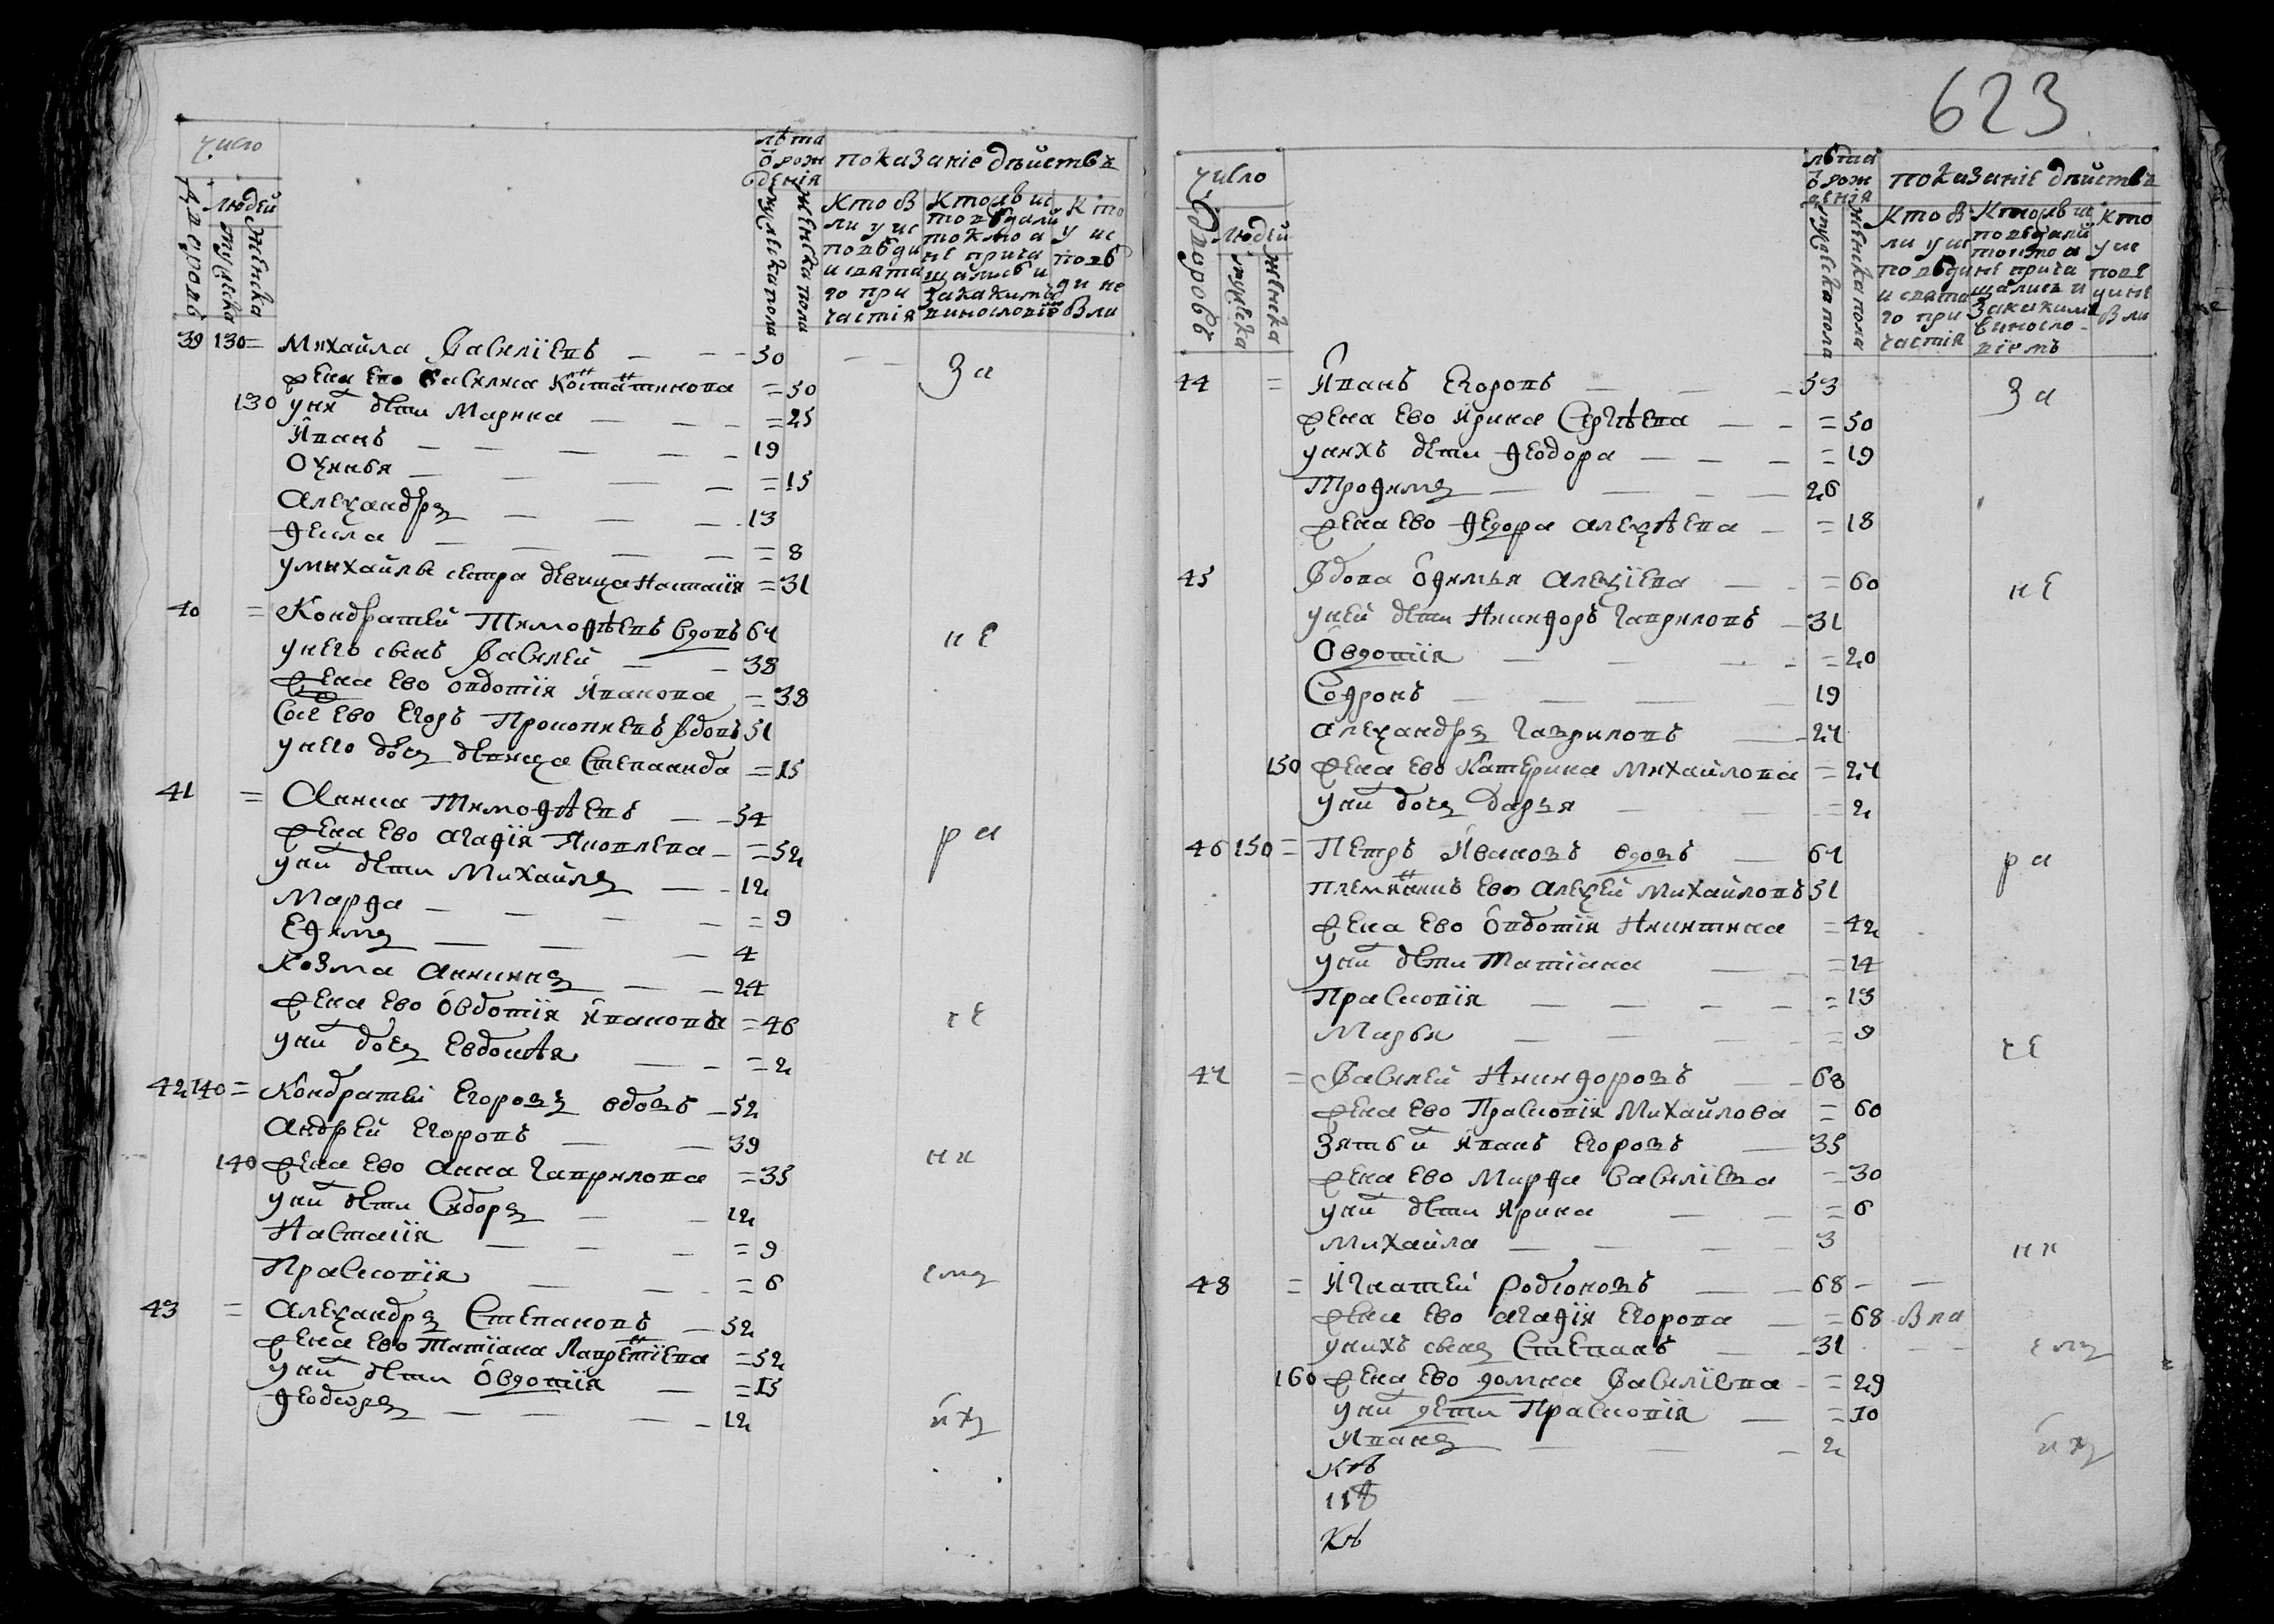 623
число
лѣта
ѿ рож
денія
показаніе дѣйствъ
Дворовъ
людей
мужеска
женска
мужеска пола
женска пола
кто б
ли у ис
повѣди
и свята
го при
частія
кто ис
повѣдали
токмо а
не прича
щались и
за какимъ
винословіе
кто
у ис
повѣ
ди не
были
39 130 = Михайла Василіевъ — — 50 — — За
жена ево Василиса Костатинова = 50
130 у них дѣти Марина — — = 25
Иванъ — — — 19
Офимья — — — = 15
Александръ — — — 13
Фекла — — — = 8
у михайлы сестра девица Настасія = 31
40 = Кондратей Тимофѣевъ вдовъ 61 не
у него сынъ Василей — — 38
жена ево овдотія Иванова = 38
Егоръ Прокопиевъ вдовъ 51
у него дочь девица Степанида = 15
41 = Аника Тимофѣевъ — 54
жена ево агафія Яковлева — = 52 ра
у них дѣти Михайла — 12
Марфа — — — = 9
Ефимъ — — — 4
Козма Аникинъ — — 24
жена ево Овдотія Иванова = 46 че
у них дочь Евдокѣя — = 2
42 140 = Кондратей Егоровъ вдовъ — 52
Андрей Егоровъ — — 39
140 жена ево Анна Гаврилова = 35 ни
у них дѣти Сидоръ — — 12
Настасія — — — = 9
Прасковія — — = 6 емъ
43 = Александръ Степановъ — 52
жена ево Татіана Лаврентіева = 52
у них дѣти Овдотія — = 15
Феодоръ — — — 12 ихъ
число
лѣта
ѿ рож
денія
показаніе дѣйствъ
Дворовъ
людей
мужеска
женска
мужеска пола
женска пола
кто б
ли у ис
повѣди
и свята
го при
частія
кто и
повѣдали
токмо а
не прича
щались и
за какимъ
виносло
віемъ
кто
у ис
повѣ
ди не
были
44 = Иванъ Егоровъ — — — 53 За
жена ево Ирина Сергѣева — = 50
у нихъ дѣти Феодора — — = 19
Трофимъ — — — 26
жена ево Федора алексѣева — = 18
45 Вдова Офимья Алексіева — = 60 не
у ней дѣти Никифоръ Гавриловъ — 31
Овдотія — — — = 20
Софронъ — — — 19
Александръ Гавриловъ — 21
150 жена ево Катерина Михайлова = 21
у них дочь Дарья — = 2
46 150 = Петръ Ивановъ вдовъ — 61 ра
племяникъ ево Алексей Михайловъ 51
жена ево Овдотія Никитина = 42
у них дѣти Татіана — = 14
Прасковія — — — = 13
Марья — — — = 9 че
47 = Василей Никифоровъ — 68
жена ево Прасковія Михайлова = 60
Зять и Иванъ Егоровъ — 35
жена ево Марфа Василіева = 30
у них дѣти Ирина — — = 6
Михайла — — — 3 ни
48 = Игнатей Родіоновъ — — 68 — —
жена ево агафія Егорова — = 68 вли
у нихъ сынъ Степанъ — — 31 емъ
160 жена ево домна Василіева — = 29
у них дети Прасковія — = 10
Иванъ — — — 2 ихъ